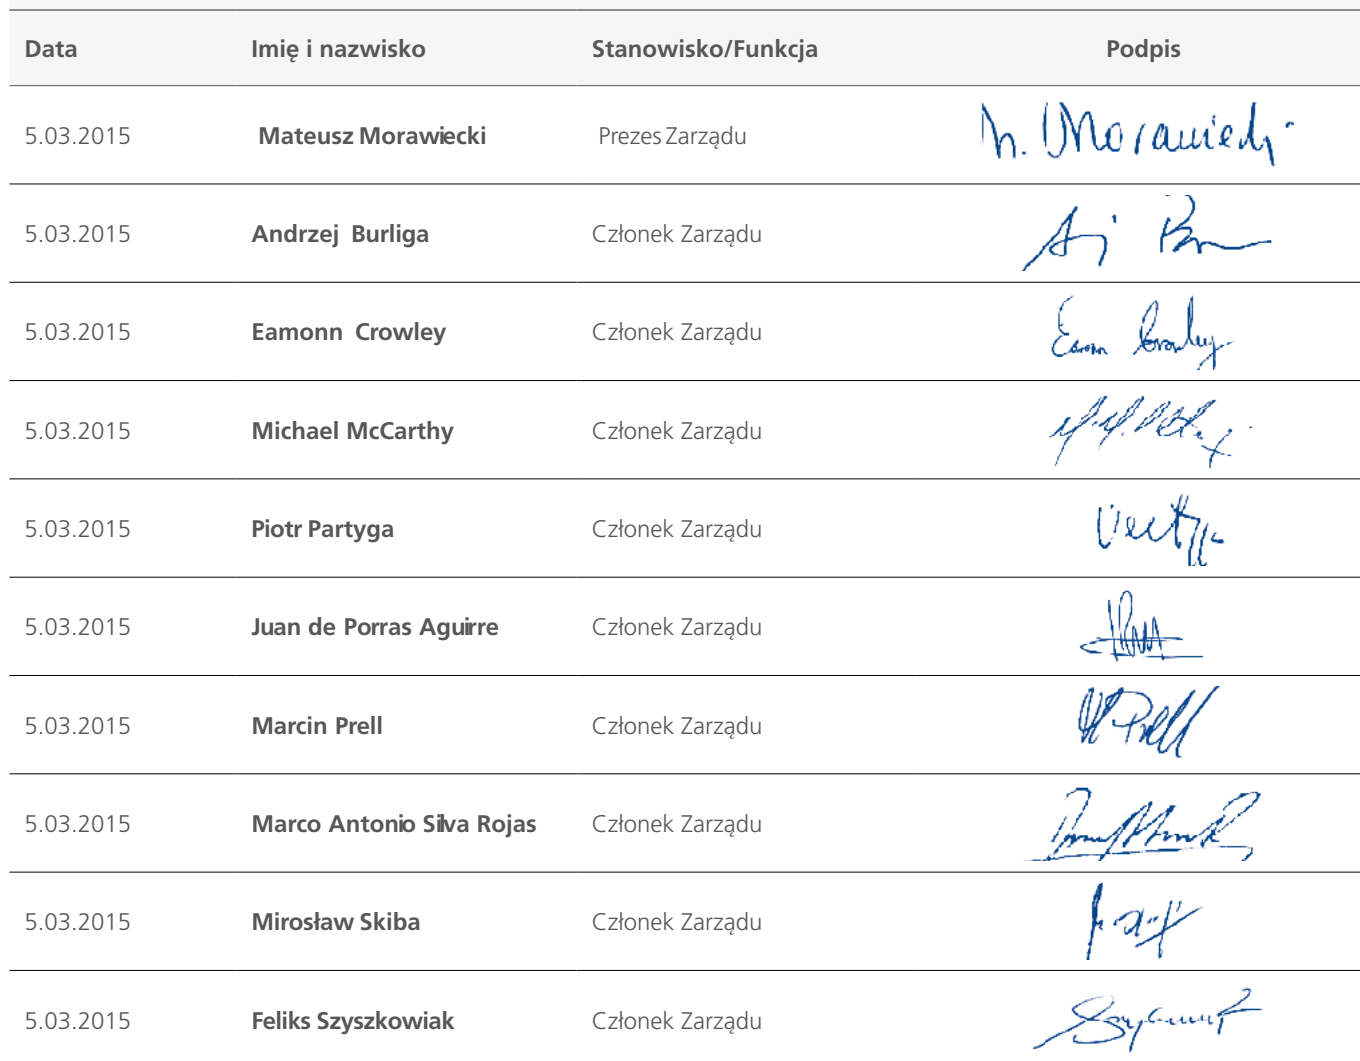 Data Imię i nazwisko Stanowisko/Funkcja Podpis
5.03.2015 Mateusz Morawiecki Prezes Zarządu M. Morawiecki
5.03.2015 Andrzej Burliga Członek Zarządu
5.03.2015 Eamonn Crowley Członek Zarządu Eamonn Crowley
5.03.2015 Michael McCarthy Członek Zarządu
5.03.2015 Piotr Partyga Członek Zarządu
5.03.2015 Juan de Porras Aguirre Członek Zarządu
5.03.2015 Marcin Prell Członek Zarządu M Prell
5.03.2015 Marco Antonio Silva Rojas Członek Zarządu
5.03.2015 Mirosław Skiba Członek Zarządu
5.03.2015 Feliks Szyszkowiak Członek Zarządu